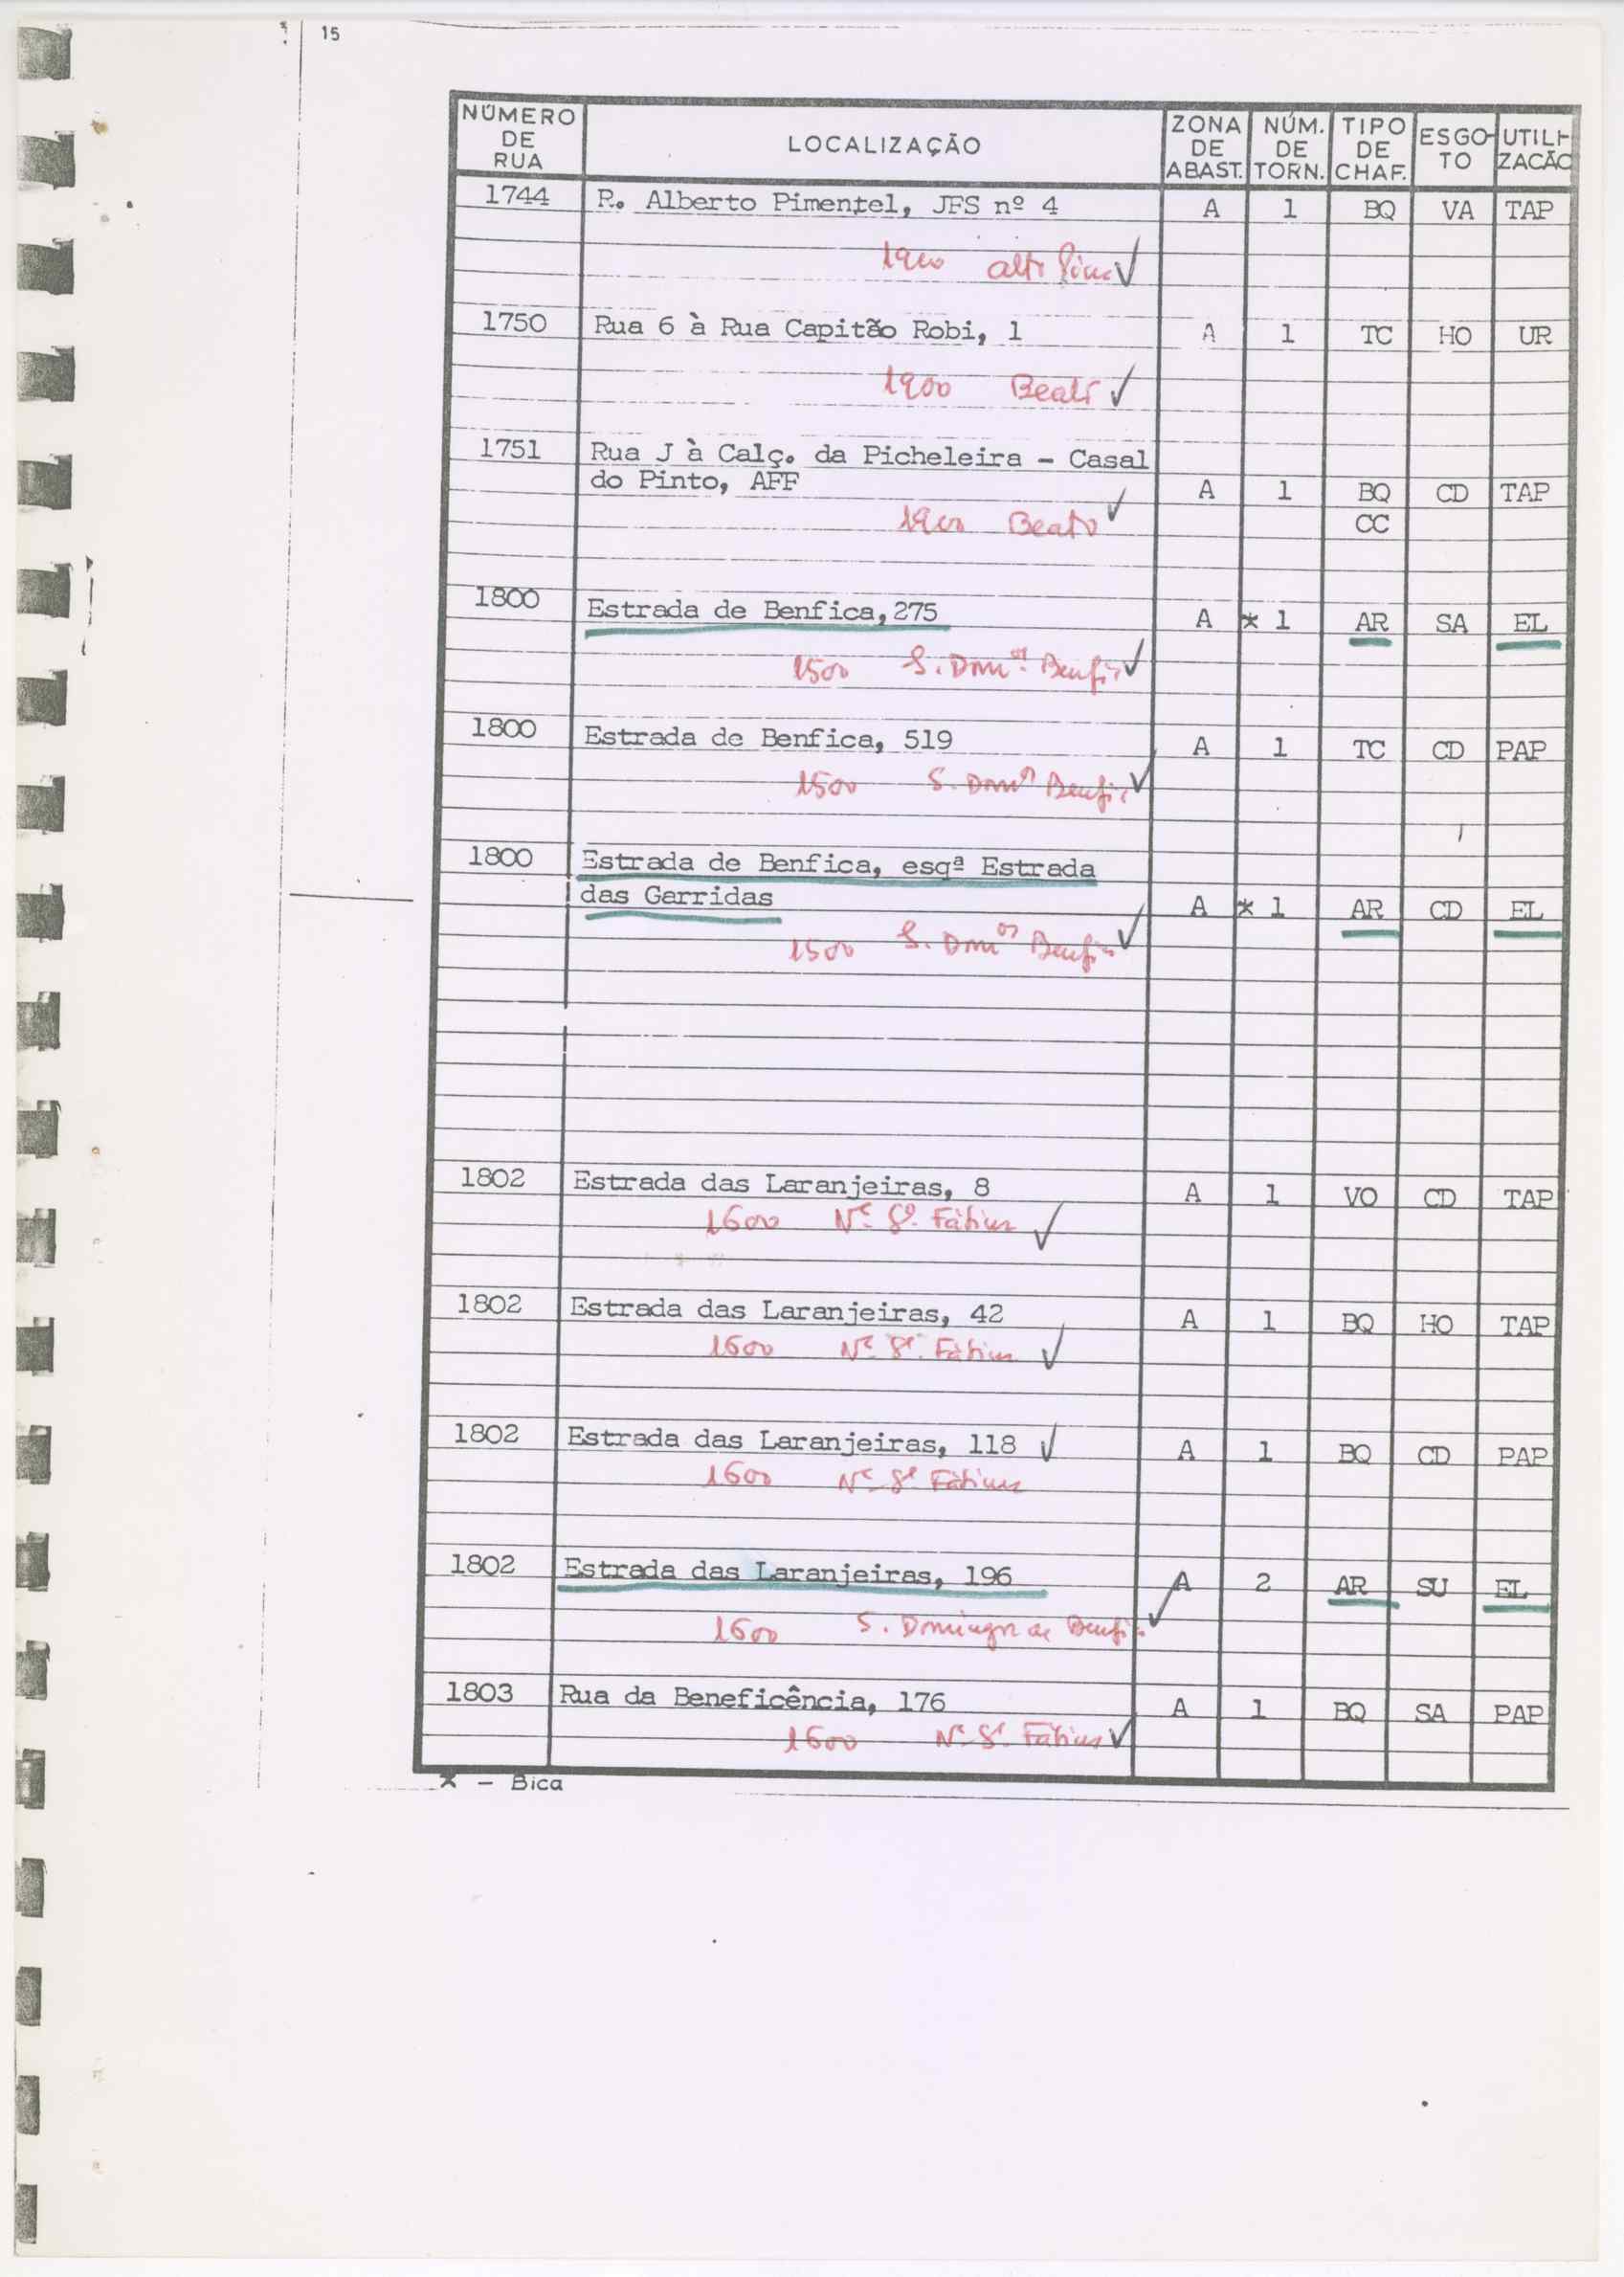 15
NÚMERO DE RUA | LOCALIZAÇÃO | ZONA DE ABAST. | NÚM. DE TORN. | TIPO DE CHAF. | ESGO-TO | UTILI-ZACÃO
1744 | R. Alberto Pimentel, JFS nº 4 | A | 1 | BQ | VA | TAP
1900 alto ✓
1750 | Rua 6 à Rua Capitão Robi, 1 | A | 1 | TC | HO | UR
1900 Beato ✓
1751 | Rua J à Calç. da Picheleira - Casal
do Pinto, AFF | A | 1 | BQ | CD | TAP
1900 Beato ✓ | CC
1800 | Estrada de Benfica, 275 | A | * 1 | AR | SA | EL
1500 S. Dom.os Benfica ✓
1800 | Estrada de Benfica, 519 | A | 1 | TC | CD | PAP
1500 S. Dom.os Benfica ✓
1800 | Estrada de Benfica, esqª Estrada
das Garridas | A | * 1 | AR | CD | EL
1500 S. Dom.os Benfica ✓
1802 | Estrada das Laranjeiras, 8 | A | 1 | VO | CD | TAP
1600 Nª Sª Fátima ✓
1802 | Estrada das Laranjeiras, 42 | A | 1 | BQ | HO | TAP
1600 Nª Sª Fátima ✓
1802 | Estrada das Laranjeiras, 118 ✓ | A | 1 | BQ | CD | PAP
1600 Nª Sª Fátima
1802 | Estrada das Laranjeiras, 196 | A | 2 | AR | SU | EL
1600 S. Domingos de Benfica ✓
1803 | Rua da Beneficência, 176 | A | 1 | BQ | SA | PAP
1600 Nª Sª Fátima ✓
* - Bica